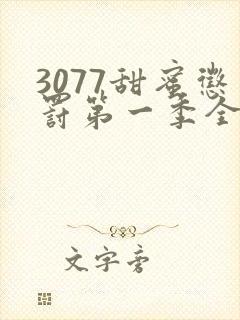 3077甜蜜惩
罚第一季全
文字旁